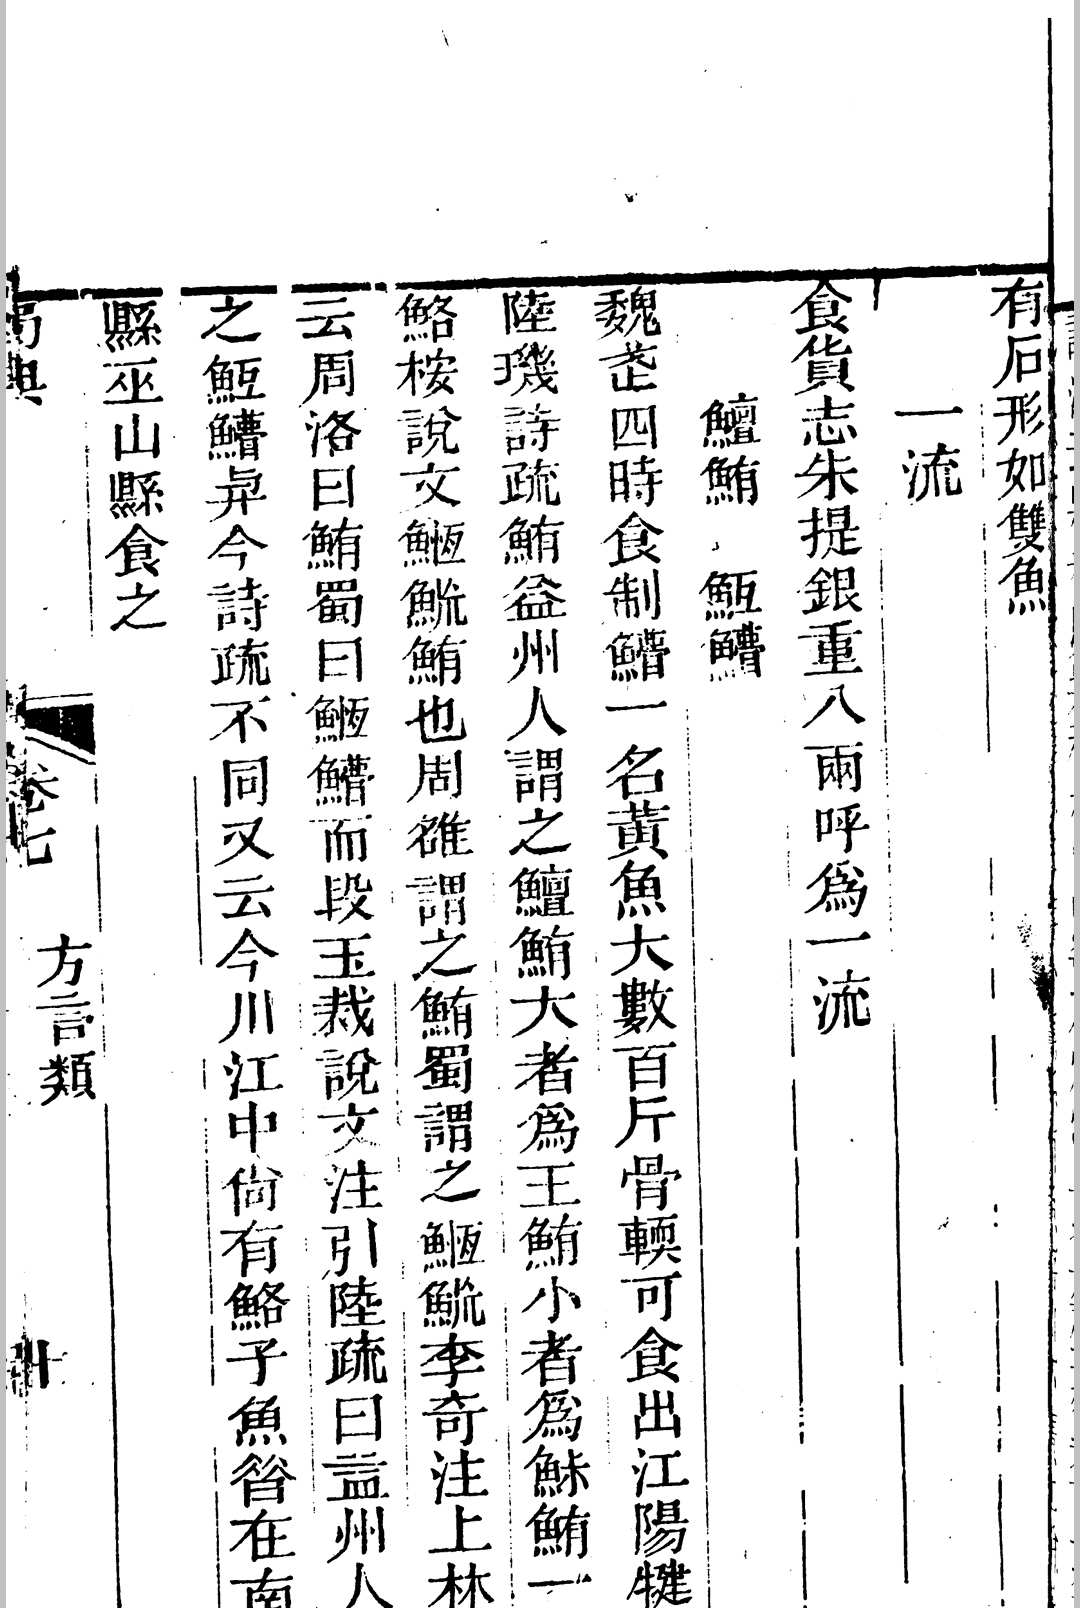 有石形如雙魚
一流
食貨志朱提銀重八兩呼爲一流
鱣鮪　䱎䲃
魏武四時食制䲃一名黃魚大數百斤骨輭可食出江陽犍
陸璣詩疏鮪益州人謂之鱣鮪大者爲王鮪小者爲鮇鮪一
鮥桉說文䱭䲛鮪也周雒謂之鮪蜀謂之䱭䲛李奇注上林
云周洛曰鮪蜀曰䱭䲃而段玉裁說文注引陸疏曰益州人
之䱎䲃與今詩疏不同又云今川江中尚有鮥子魚昝在南
縣巫山縣食之
蜀典
卷七
方言類